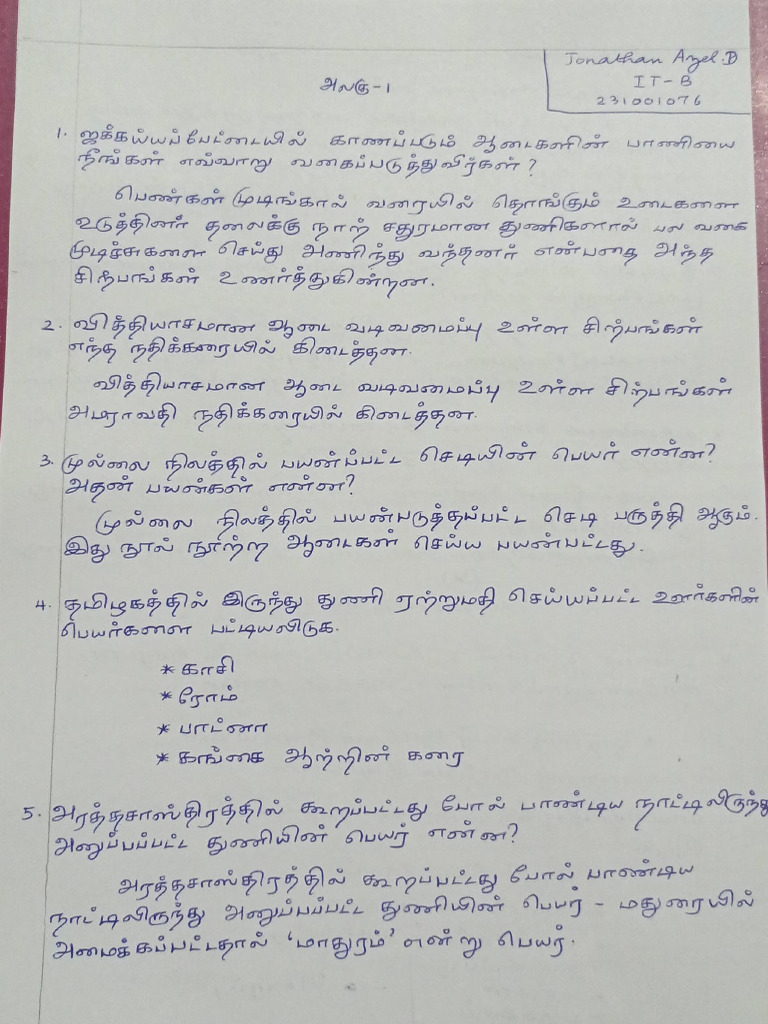 Jonathan Azel.D
IT-B
231001076
அலகு-1
1. ஜக்கய்யப்பேட்டையில் காணப்படும் ஆடைகளின் பாணியை
நீங்கள் எவ்வாறு வகைப்படுத்துவீர்கள்?
பெண்கள் முடிங்கால் வரையில் தொங்கும் உடைகளை
உடுத்தினர் தலைக்கு நாற் சதுரமான துணிகளால் பல வகை
முடிச்சுகளை செய்து அணிந்து வந்தனர் என்பதை அந்த
சிற்பங்கள் உணர்த்துகின்றன.
2. வித்தியாசமான ஆடை வடிவமைப்பு உள்ள சிற்பங்கள்
எந்த நதிக்கரையில் கிடைத்தன.
வித்தியாசமான ஆடை வடிவமைப்பு உள்ள சிற்பங்கள்
அமராவதி நதிக்கரையில் கிடைத்தன.
3. முல்லை நிலத்தில் பயன்ப்பட்ட செடியின் பெயர் என்ன?
அதன் பயன்கள் என்ன?
முல்லை நிலத்தில் பயன்படுத்தப்பட்ட செடி பருத்தி ஆகும்.
இது நூல் நூற்ற ஆடைகள் செய்ய பயன்பட்டது.
4. தமிழகத்தில் இருந்து துணி ஏற்றுமதி செய்யப்பட்ட ஊர்களின்
பெயர்களை பட்டியலிடுக.
* காசி
* ரோம்
* பாட்னா
* கங்கை ஆற்றின் கரை
5. அரத்தசாஸ்திரத்தில் கூறப்பட்டது போல் பாண்டிய நாட்டிலிருந்து
அனுப்பப்பட்ட துணியின் பெயர் என்ன?
அரத்தசாஸ்திரத்தில் கூறப்பட்டது போல் பாண்டிய
நாட்டிலிருந்து அனுப்பப்பட்ட துணியின் பெயர் - மதுரையில்
அமைக்கப்பட்டதால் 'மாதுரம்' என்று பெயர்.